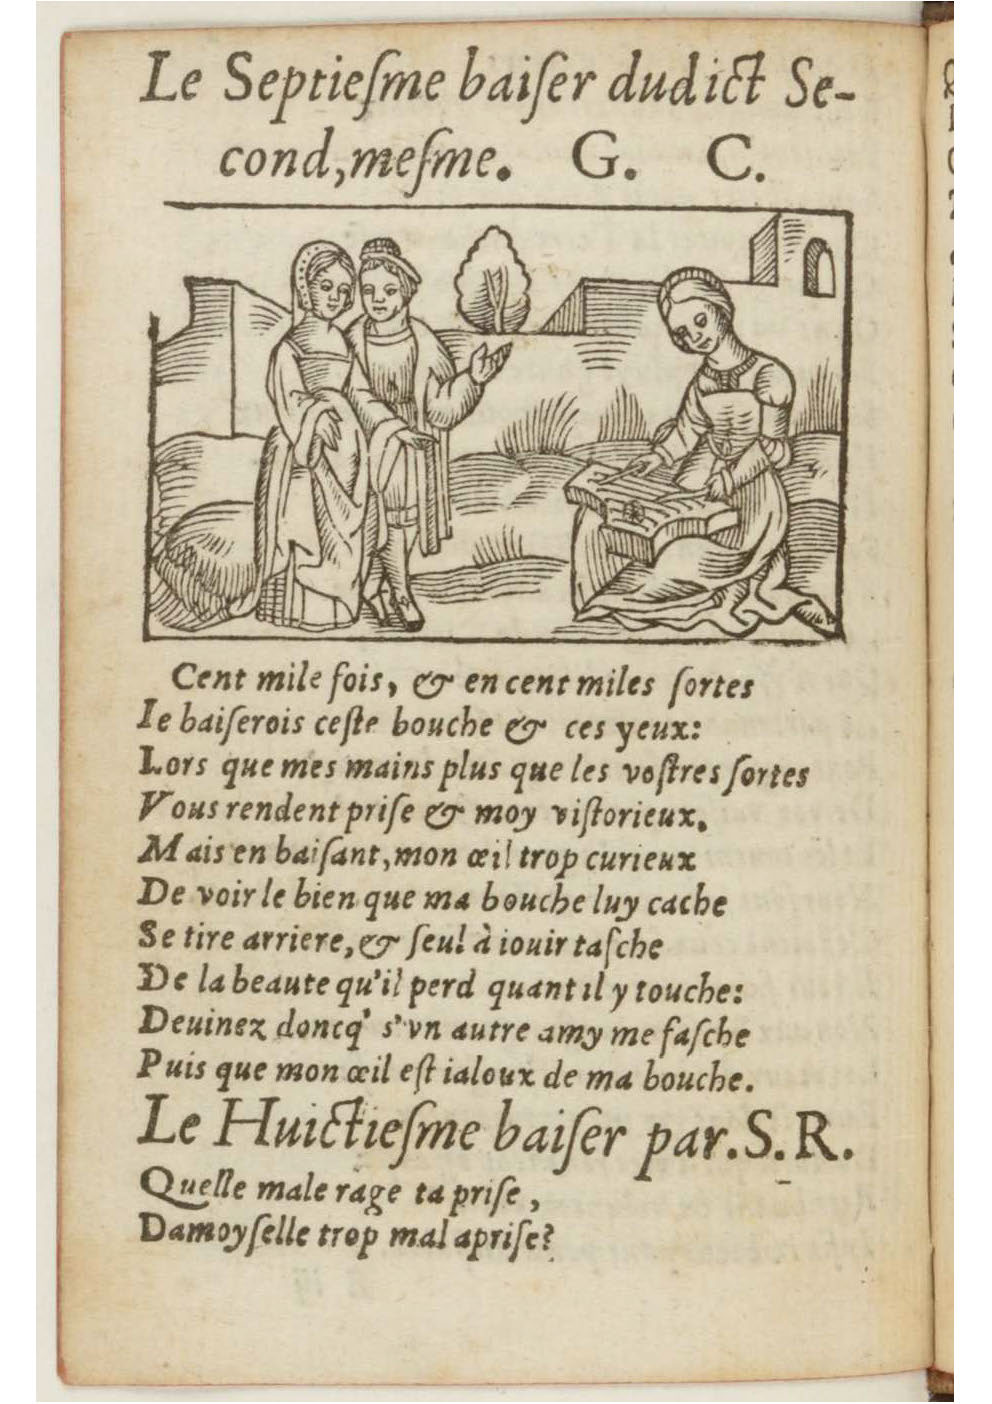 Le Septieſme baiſer dudict Se-
cond, meſme. G. C.
Cent mile fois, & en cent miles ſortes
Ie baiſerois ceſte bouche & ces yeux:
Lors que mes mains plus que les voſtres fortes
Vous rendent priſe & moy viſtorieux.
Mais en baiſant, mon œil trop curieux
De voir le bien que ma bouche luy cache
Se tire arriere, & ſeul à iouir taſche
De la beaute qu'il perd quant il y touche:
Deuinez doncq' s'vn autre amy me faſche
Puis que mon œil eſt ialoux de ma bouche.
Le Huictieſme baiſer par. S. R.
Quelle male rage ta priſe,
Damoyſelle trop mal apriſe?